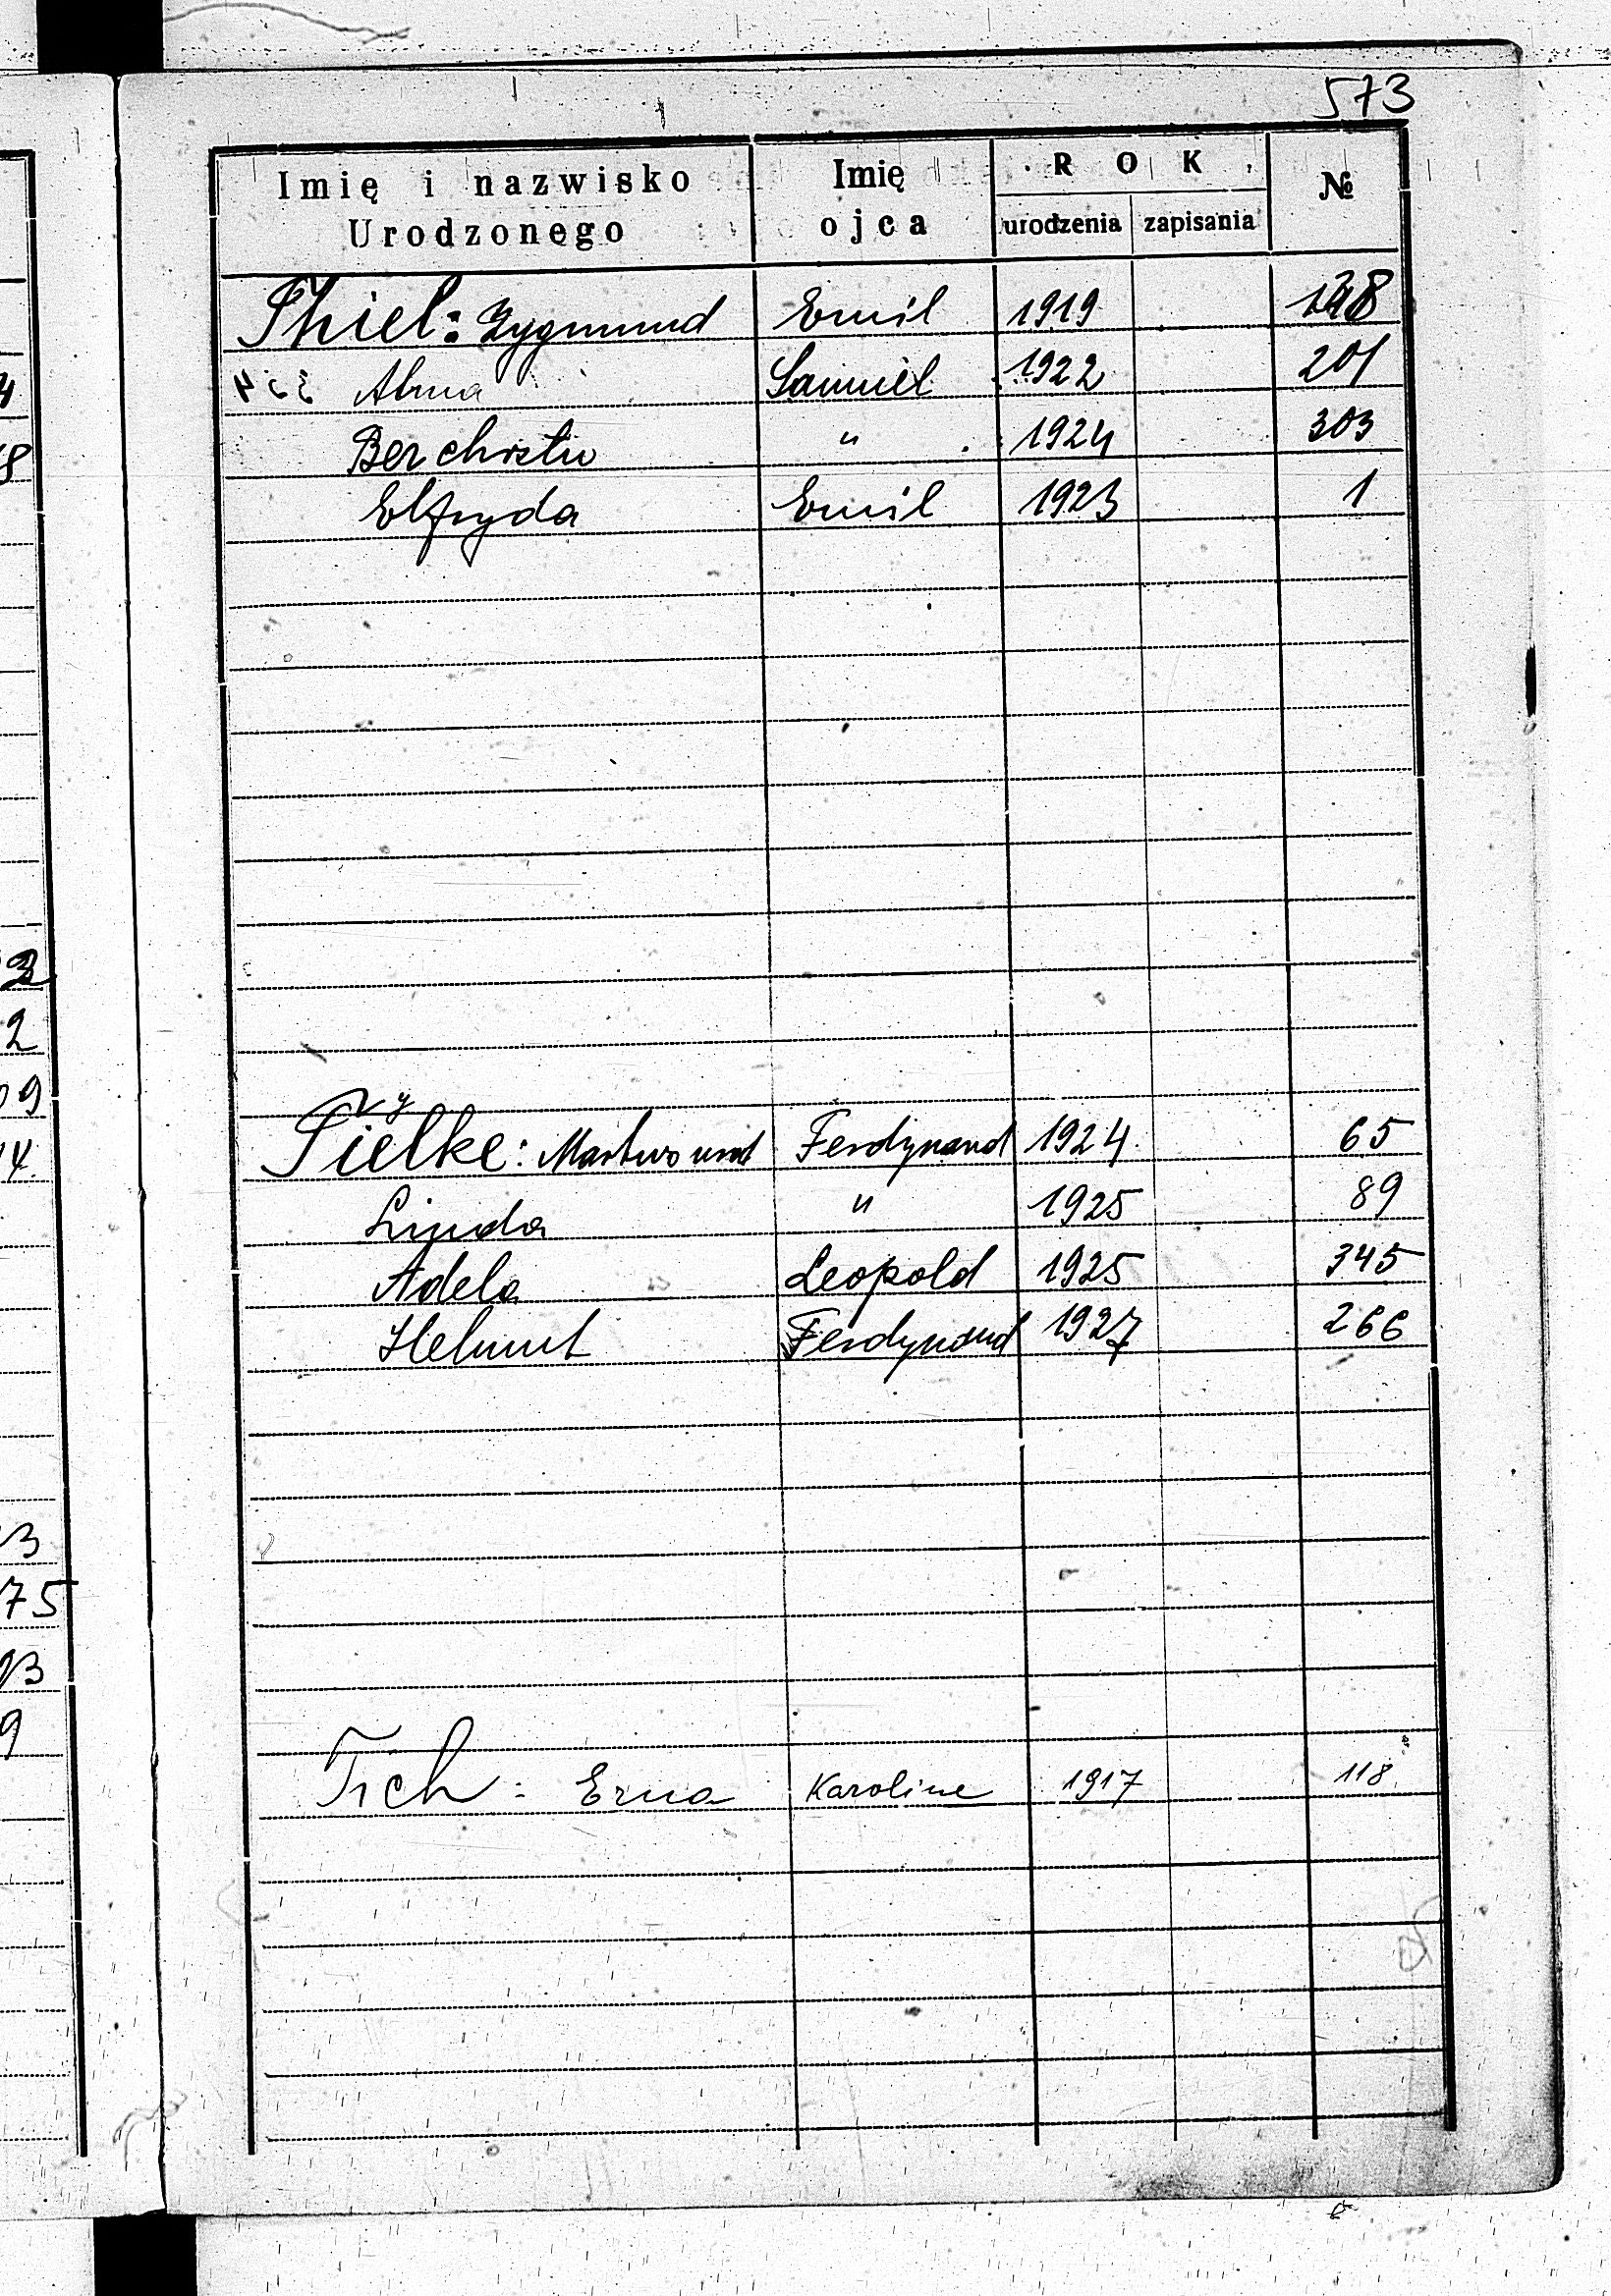 573
Imię i nazwisko Urodzonego Imię ojca ROK urodzenia zapisania №
Thiel: Zygmund Emil 1919
Alma Samuel 1922 201
Ber chrztu " 1924 303
Elfryda Emil 1923 1
y
Tielke: Martwo urod Ferdynand 1924 65
Linda " 1925 89
Adela Leopold 1925 345
Helmut Ferdynand 1927 266
Tich: Erna Karoline 1917 118
4
8
2
09
14.
3
75
93
9